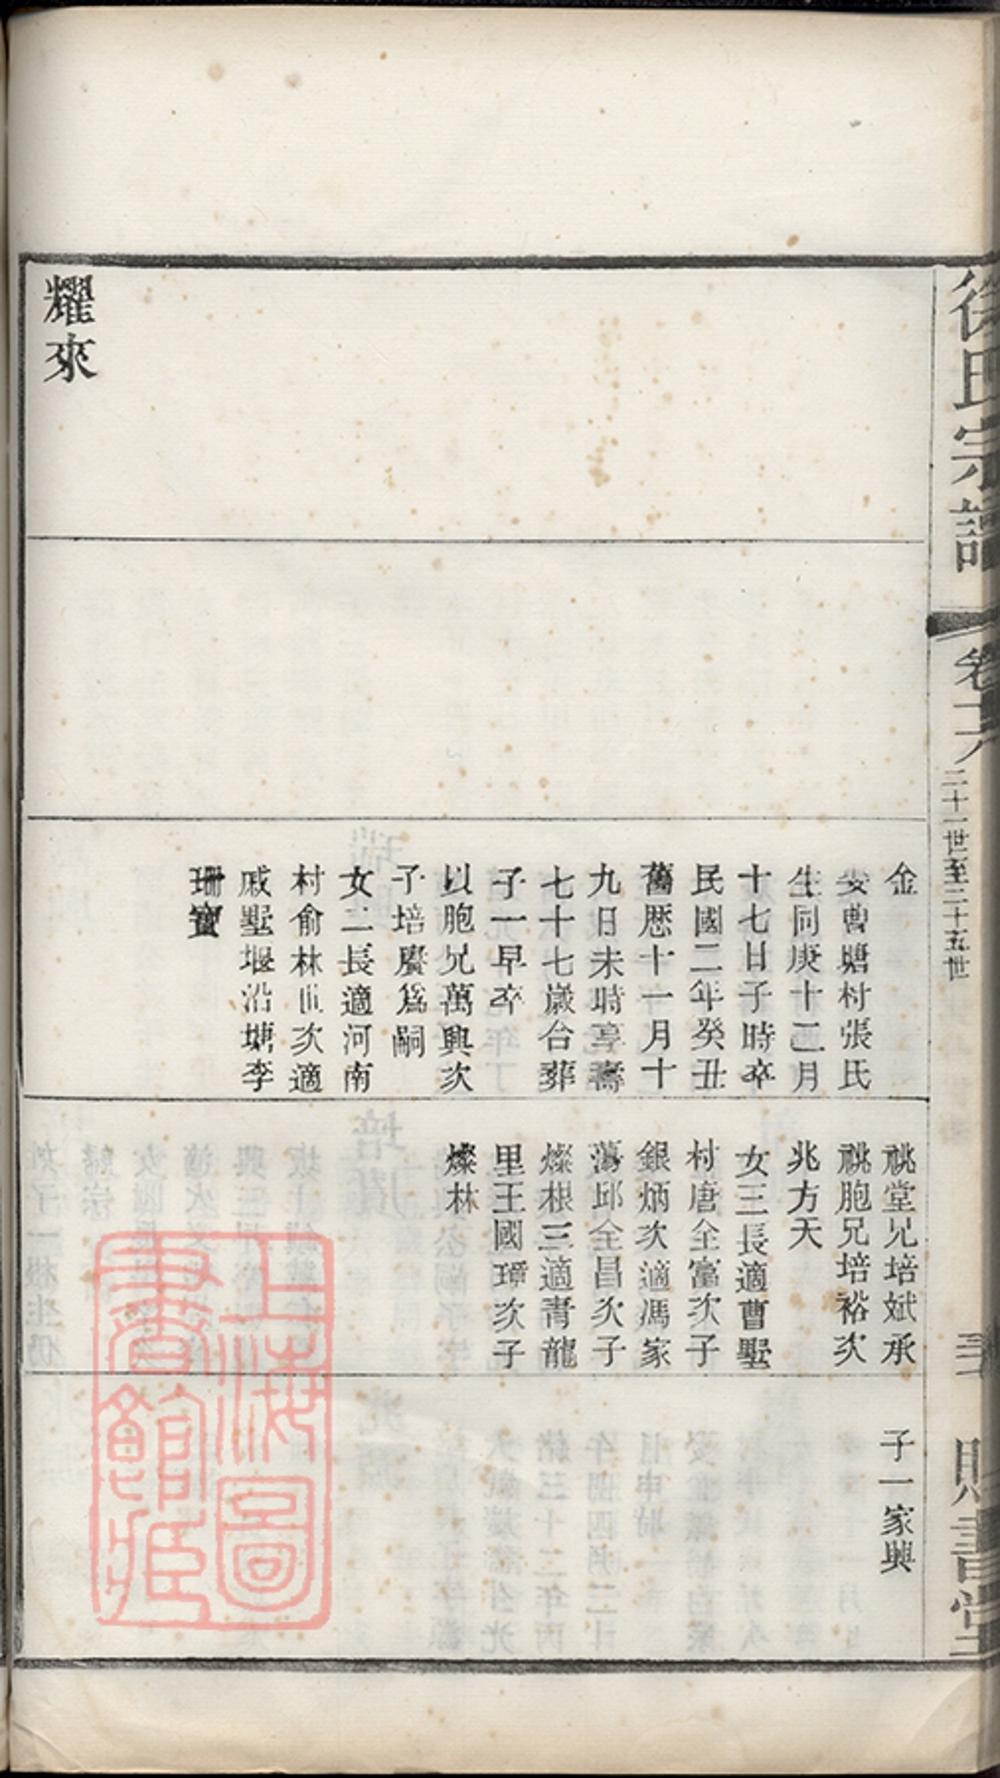 徐氏宗譜
卷十六
二十一世至二十五世
賜書堂
耀來
金
娶曹塘村張氏
生同庚十二月
十七日子時卒
民國二年癸丑
舊歷十一月十
九日未時享壽
七十七歲合葬
子一早卒
以胞兄萬興次
子培賡爲嗣
女二長適河南
村俞林 次適
戚墅堰沿塘李
珊寶
祧堂兄培斌承
祧胞兄培裕次
兆方天
女三長適曹墅
村唐全富次子
銀炳次適馮家
蕩邱全昌次子
燦根三適青龍
里王國璋次子
燦林
子一家興
上海圖書館藏